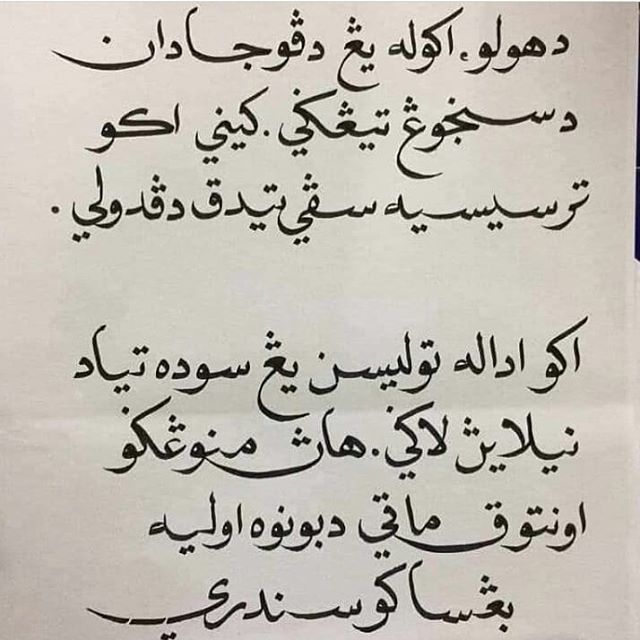 دهولو، اكوله يڠ دڤوجا دان
دسنجوڠ تيڠݢي. كيني اكو
ترسيسيه سڤي تيدق دڤدولي.
اكو اداله توليسن يڠ سوده تياد
نيلاين لاݢي. هاڽ منوڠݢو
اونتوق ماتي دبونوه اوليه
بڠسا كو سنديري